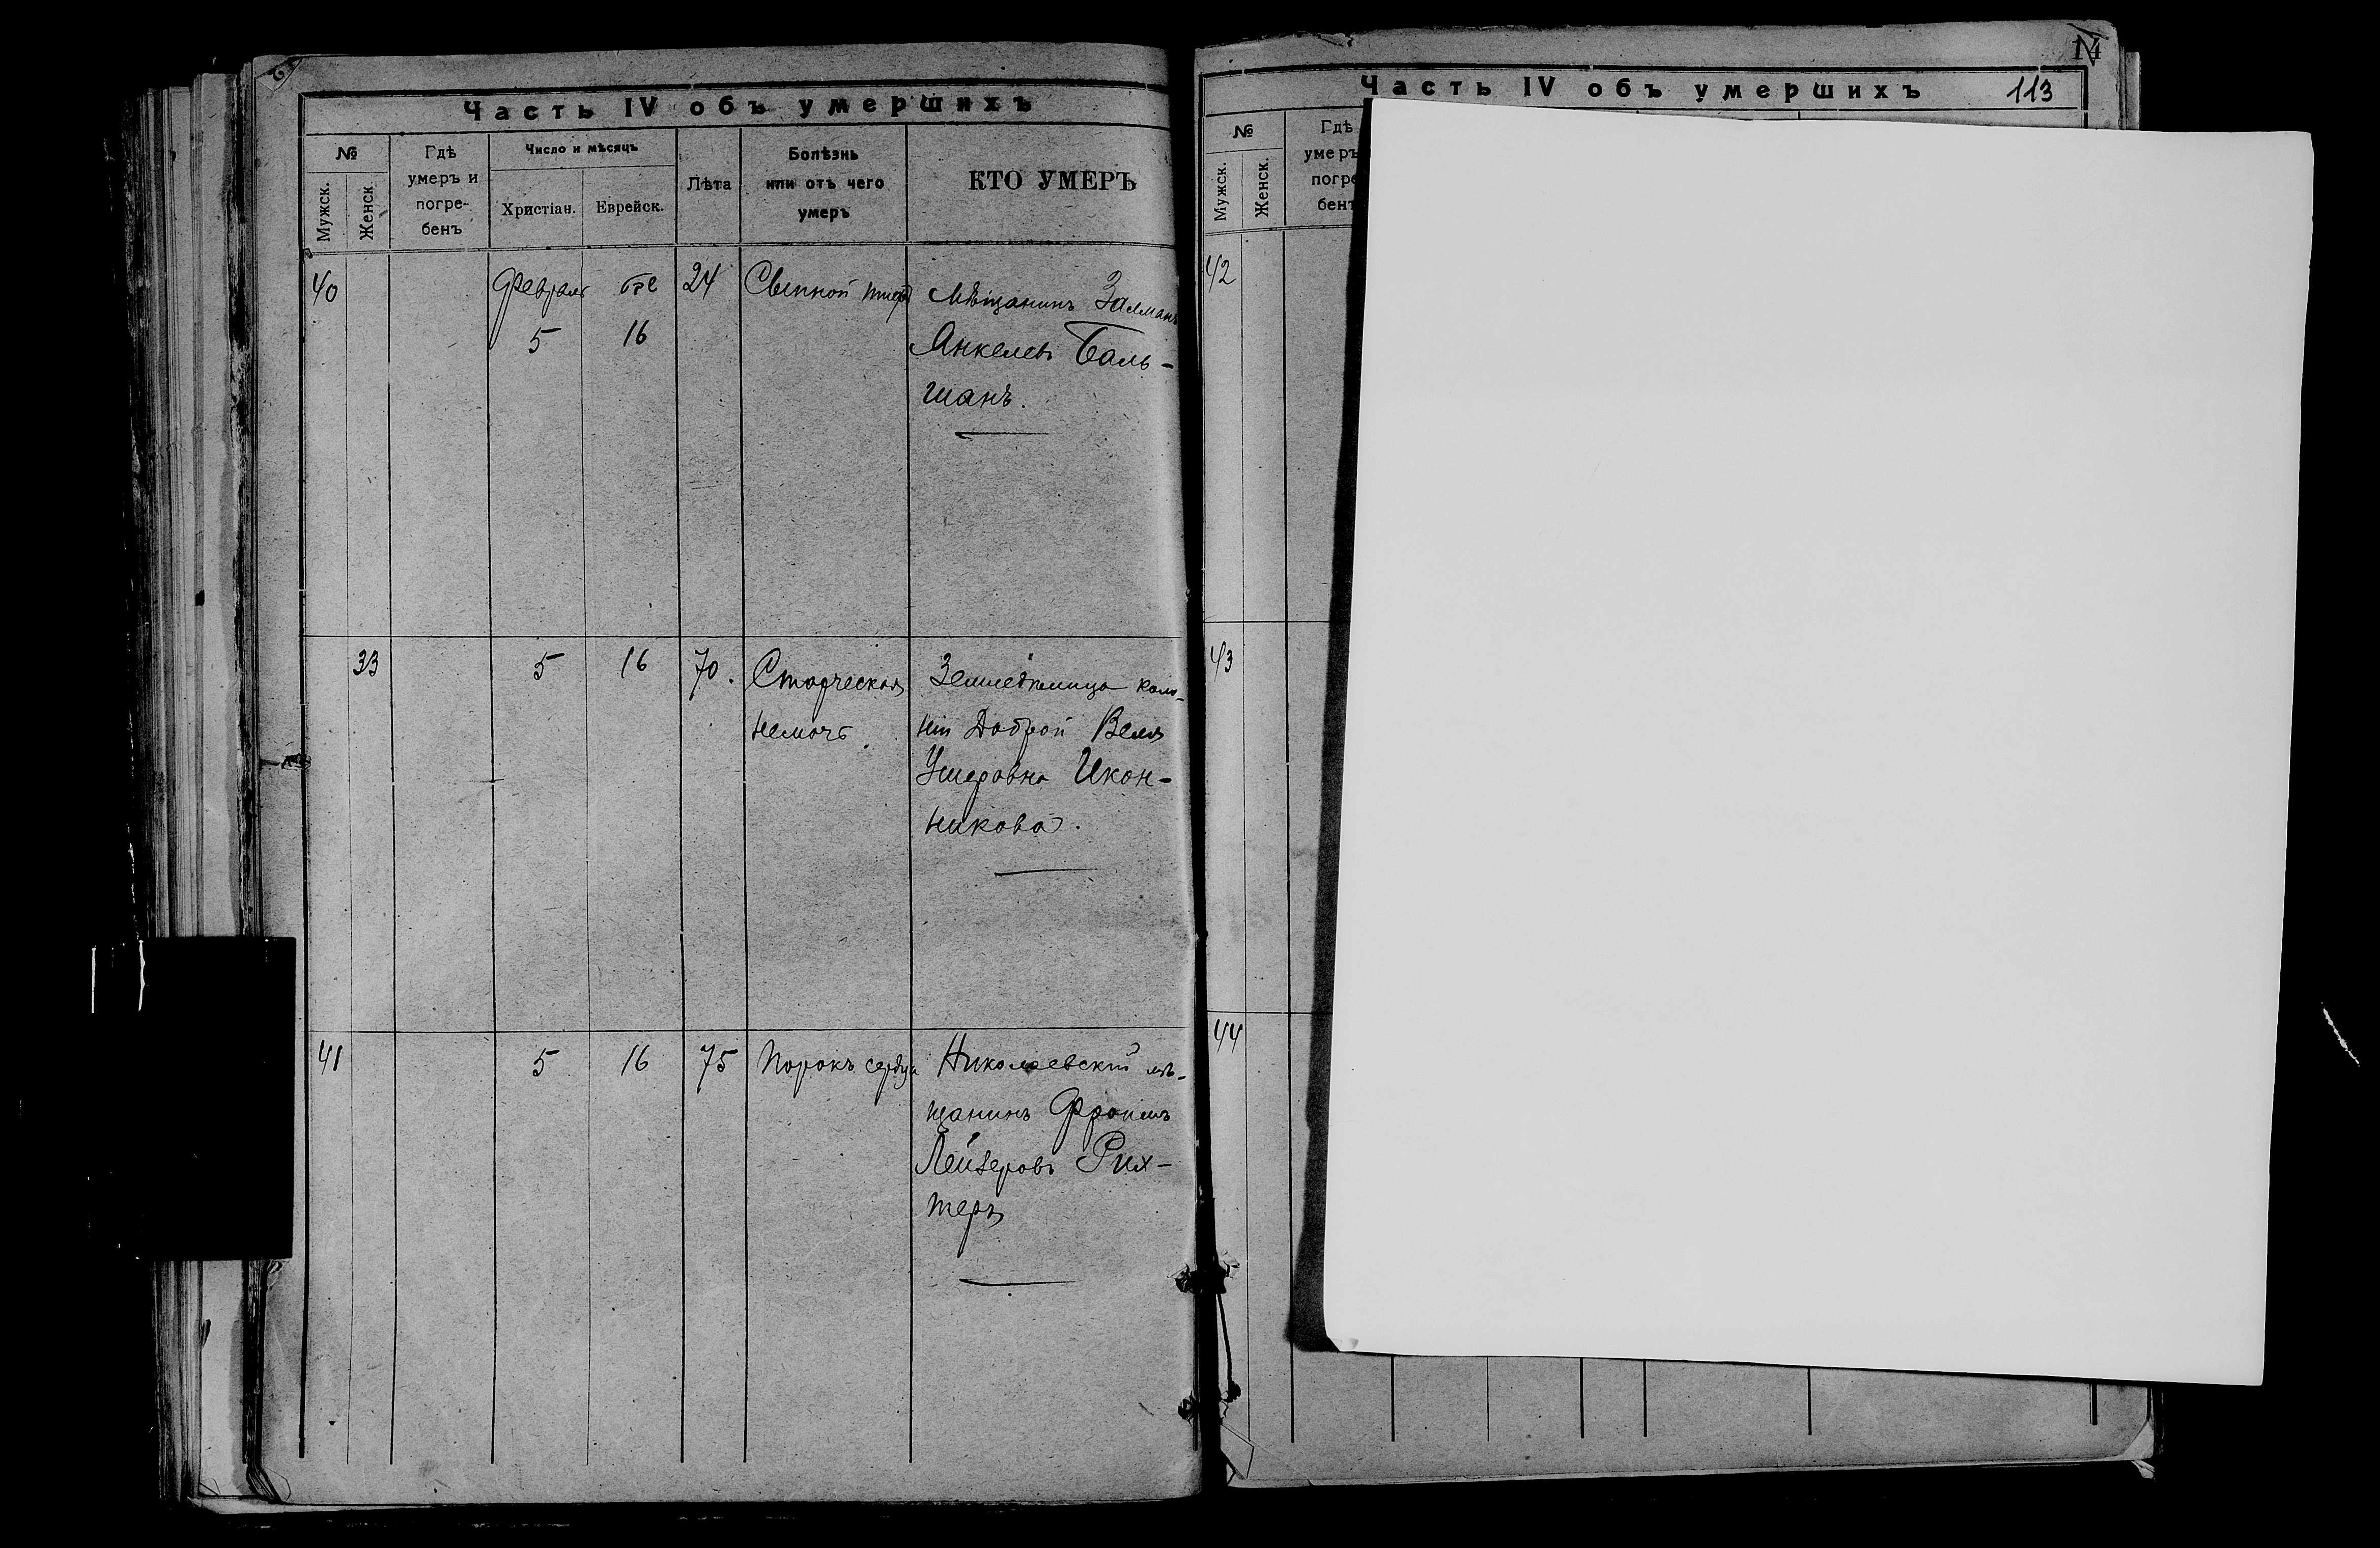 Часть IV объ умершихъ
№
Мужск.
Женск.
Гдѣ
умеръ и
погре-
бенъ
Число и мѣсяцъ
Христіан.
Еврейск.
Лѣта
Болѣзнь
или отъ чего
умеръ
КТО УМЕРЪ
40
Февраль
5
16
24
Сыпной тифъ
Мѣщанинъ Залманъ
Янкелевъ Баль-
шанъ.
33
5
16
70.
Старческая
немочь
Земледѣлица коло-
ніи Доброй Веля
Ушеровна Икон-
никова.
41
5
16
75
Порокъ сердца
Николаевскій мѣ-
щанинъ Фроимъ
Лейзеровъ Рих-
теръ
14
Часть IV объ умершихъ
113
№
Мужск.
Женск.
Гдѣ
умеръ
погре
бенъ
42
43
44